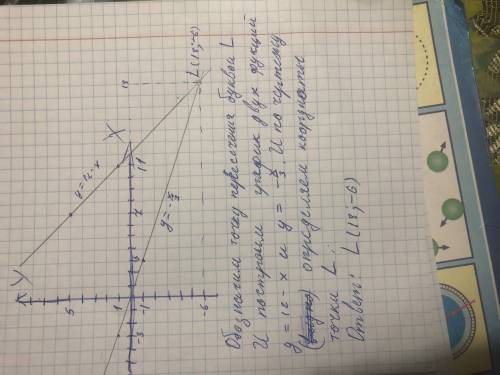 Y
5
1
-3
-1
-6
X
y=12-x
y=-x/3
18
L(18;-6)
Обозначим точку пересечения буквой L
И построим график двух функций
y=12-x и y=-x/3. И по чертежу
определяем координаты
точки L.
Ответ: L(18;-6)